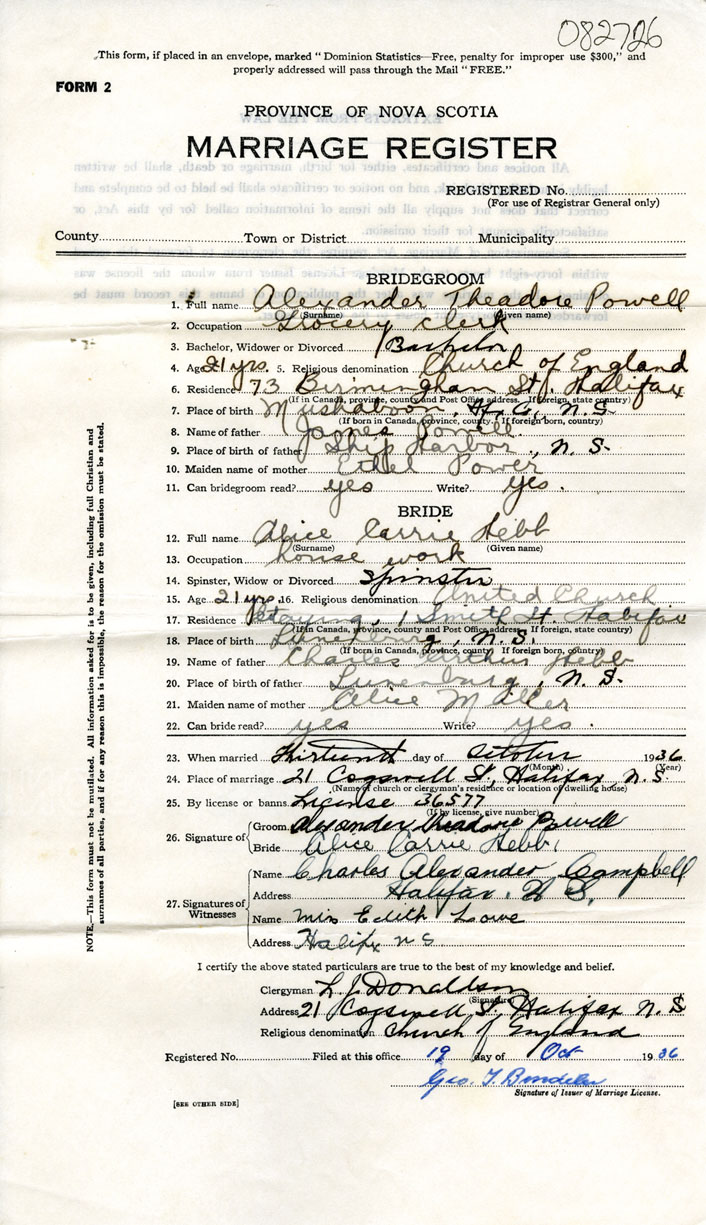 082726
This form, if placed in an envelope, marked "Dominion Statistics—Free, penalty for improper use $300," and
properly addressed will pass through the Mail "FREE."
FORM 2
PROVINCE OF NOVA SCOTIA
MARRIAGE REGISTER
REGISTERED No.
(For use of Registrar General only)
County Town or District Municipality
BRIDEGROOM
1. Full name Alexander Theodore Powell
(Surname) (Given name)
2. Occupation Grocery clerk
3. Bachelor, Widower or Divorced Bachelor
4. Age 21 yrs. 5. Religious denomination Church of England
6. Residence 73 Birmingham St. Halifax
(If in Canada, province, county and Post Office address. If foreign, state country)
7. Place of birth Mushaboon, Hfx. Co., N.S.
(If born in Canada, province, county. If foreign born, country)
8. Name of father James Powell
9. Place of birth of father Ship Harbor, N.S.
10. Maiden name of mother Ethel Power
11. Can bridegroom read? yes Write? yes.
BRIDE
12. Full name Alice Carrie Hebb
(Surname) (Given name)
13. Occupation house work
14. Spinster, Widow or Divorced Spinster
15. Age 21 yrs. 16. Religious denomination United Church
17. Residence 1 Smith St. Halifax
(If in Canada, province, county and Post Office address. If foreign, state country)
18. Place of birth Lunenburg, N.S.
(If born in Canada, province, county. If foreign born, country)
19. Name of father Charles Arthur Hebb
20. Place of birth of father Lunenburg, N.S.
21. Maiden name of mother Alice Miller
22. Can bride read? yes Write? yes.
23. When married Thirteenth day of October 1936
(Month) (Year)
24. Place of marriage 21 Cogswell St, Halifax N.S.
(Name of church or clergyman's residence or location of dwelling house)
25. By license or banns License 36577
(If by license, give number)
26. Signature of Groom Alexander Theodore Powell
Bride Alice Carrie Hebb
27. Signatures of Witnesses Name Charles Alexander Campbell
Address Halifax. N.S.
Name Miss Edith Lowe
Address Halifx N S
I certify the above stated particulars are true to the best of my knowledge and belief.
Clergyman L. J. Donaldson
(Signature)
Address 21 Cogswell St, Halifax N.S
Religious denomination Church of England
Registered No. Filed at this office 19 day of Oct 1936
Geo. T.
Signature of Issuer of Marriage License.
[SEE OTHER SIDE]
NOTE.—This form must not be mutilated. All information asked for is to be given, including full Christian and
surnames of all parties, and if for any reason this is impossible, the reason for the omission must be stated.